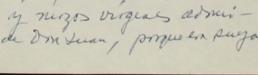 y mozos vírgenes admi-
de Don Juan, porque era suya